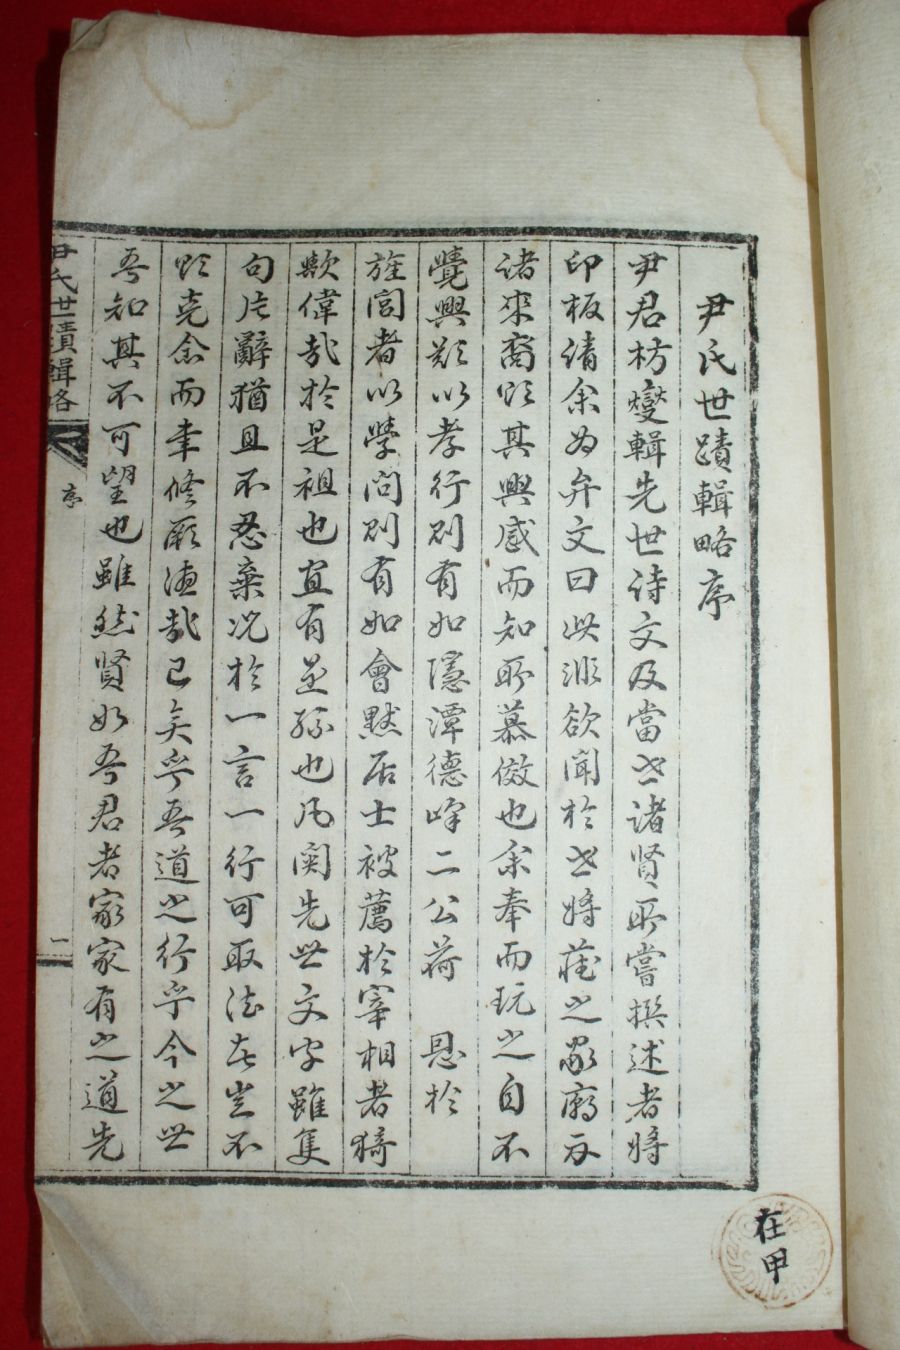 尹氏世蹟輯略序
尹君枋爕輯先世詩文及當世諸賢所嘗撰述者將
印板請余爲弁文曰此非欲聞於世將莊之家廟示
諸來裔欲其興感而知所慕倣也余奉而玩之自不
覺興歎以孝行則有如隱潭德峰二公荷 恩於
旌閭者以學問則有如會默居士被薦於宰相者猗
歟偉哉於是祖也宜有是孫也凡関先世文字雖隻
句片辭猶且不忍棄况於一言一行可取法者豈不
欲克念而聿修厥德哉已矣乎吾道之行乎今之世
吾知其不可望也雖然賢如吾君者家家有之道先
尹氏世蹟輯略
序
一
在甲